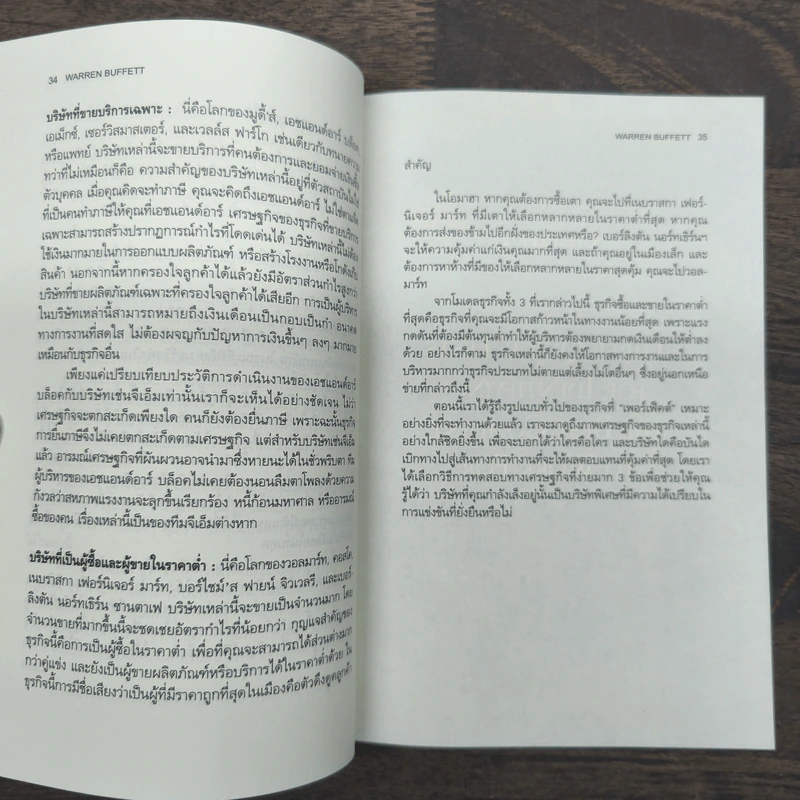 34 WARREN BUFFETT
บริษัทที่ขายบริการเฉพาะ : นี่คือโลกของมูดี้'ส์, เอชแอนด์อาร์ บล็อค,
เอเม็กซ์, เซอร์วิสมาสเตอร์, และเวลล์ส ฟาร์โก เช่นเดียวกับทนายความ
หรือแพทย์ บริษัทเหล่านี้จะขายบริการที่คนต้องการและยอมจ่ายเงินซื้อ
ทว่าที่ไม่เหมือนก็คือ ความสำคัญของบริษัทเหล่านี้อยู่ที่ตัวสถาบันไม่ใช่
ตัวบุคคล เมื่อคุณคิดจะทำภาษี คุณจะคิดถึงเอชแอนด์อาร์ ไม่ใช่ตาแจ็ค
ที่เป็นคนทำภาษีให้คุณที่เอชแอนด์อาร์ เศรษฐกิจของธุรกิจที่ขายบริการ
เฉพาะสามารถสร้างปรากฏการณ์กำไรที่โดดเด่นได้ บริษัทเหล่านี้ไม่ต้อง
ใช้เงินมากมายในการออกแบบผลิตภัณฑ์ หรือสร้างโรงงานหรือโกดังเก็บ
สินค้า นอกจากนี้หากครองใจลูกค้าได้แล้วยังมีอัตราส่วนกำไรสูงกว่า
บริษัทที่ขายผลิตภัณฑ์เฉพาะที่ครองใจลูกค้าได้เสียอีก การเป็นผู้บริหาร
ในบริษัทเหล่านี้สามารถหมายถึงเงินเดือนเป็นกอบเป็นกำ อนาคต
ทางการงานที่สดใส ไม่ต้องผจญกับปัญหาการเงินขึ้นๆ ลงๆ มากมาย
เหมือนกับธุรกิจอื่น
เพียงแค่เปรียบเทียบประวัติการดำเนินงานของเอชแอนด์อาร์
บล็อคกับบริษัทเช่นจีเอ็มเท่านั้นเราก็จะเห็นได้อย่างชัดเจน ไม่ว่า
เศรษฐกิจจะตกสะเก็ดเพียงใด คนก็ยังต้องยื่นภาษี เพราะฉะนั้นธุรกิจ
การยื่นภาษีจึงไม่เคยตกสะเก็ดตามเศรษฐกิจ แต่สำหรับบริษัทเช่นจีเอ็ม
แล้ว อารมณ์เศรษฐีที่ผันผวนอาจนำมาซึ่งหายนะได้ในชั่วพริบตา ทีม
ผู้บริหารของเอชแอนด์อาร์ บล็อคไม่เคยต้องนอนลืมตาโพลงด้วยความ
กังวลว่าสหภาพแรงงานจะลุกขึ้นเรียกร้อง หนี้ก้อนมหาศาล หรืออารมณ์
ซื้อของคน เรื่องเหล่านี้เป็นของทีมจีเอ็มต่างหาก
บริษัทที่เป็นผู้ซื้อและผู้ขายในราคาต่ำ : นี่คือโลกของวอลมาร์ท, คอสโค,
เนบราสกา เฟอร์นิเจอร์ มาร์ท, บอร์ไชม์'ส ฟายน์ จิวเวลรี, และเบอร์-
ลิงตัน นอร์ทเธิร์น ซานตาเฟ บริษัทเหล่านี้จะขายเป็นจำนวนมาก โดย
จำนวนขายที่มากขึ้นนี้จะชดเชยอัตรากำไรที่น้อยกว่า กุญแจสำคัญของ
ธุรกิจนี้คือการเป็นผู้ซื้อในราคาต่ำ เพื่อที่คุณจะสามารถได้ส่วนต่างมาก
กว่าคู่แข่ง และยังเป็นผู้ขายผลิตภัณฑ์หรือบริการได้ในราคาต่ำด้วย ใน
ธุรกิจนี้การมีชื่อเสียงว่าเป็นผู้ที่มีราคาถูกที่สุดในเมืองคือตัวดึงดูดลูกค้า
WARREN BUFFETT 35
สำคัญ
ในโอมาฮา หากคุณต้องการซื้อเตา คุณจะไปที่เนบราสกา เฟอร์-
นิเจอร์ มาร์ท ที่มีเตาให้เลือกหลากหลายในราคาต่ำที่สุด หากคุณ
ต้องการส่งของข้ามไปอีกฝั่งของประเทศหรือ? เบอร์ลิงตัน นอร์ทเธิร์นฯ
จะให้ความคุ้มค่าแก่เงินคุณมากที่สุด และถ้าคุณอยู่ในเมืองเล็ก และ
ต้องการหาห้างที่มีของให้เลือกหลากหลายในราคาสุดคุ้ม คุณจะไปวอล-
มาร์ท
จากโมเดลธุรกิจทั้ง 3 ที่เรากล่าวไปนี้ ธุรกิจซื้อและขายในราคาต่ำ
ที่สุดคือธุรกิจที่คุณจะมีโอกาสก้าวหน้าในทางงานน้อยที่สุด เพราะแรง
กดดันที่ต้องมีต้นทุนต่ำทำให้ผู้บริหารต้องพยายามกดเงินเดือนให้ต่ำลง
ด้วย อย่างไรก็ตาม ธุรกิจเหล่านี้ก็ยังคงให้โอกาสทางการงานและในการ
บริหารมากกว่าธุรกิจประเภทไม่ตายแต่เลี้ยงไม่โตอื่นๆ ซึ่งอยู่นอกเหนือ
ข่ายที่กล่าวถึงนี้
ตอนนี้เราได้รู้ถึงรูปแบบทั่วไปของธุรกิจที่ "เพอร์เฟ็คต์" เหมาะ
อย่างยิ่งที่จะทำงานด้วยแล้ว เราจะมาดูถึงภาพเศรษฐกิจของธุรกิจเหล่านี้
อย่างใกล้ชิดยิ่งขึ้น เพื่อจะบอกได้ว่าใครคือใคร และบริษัทใดคือบันได
เบิกทางไปสู่เส้นทางการทำงานที่จะให้ผลตอบแทนที่คุ้มค่าที่สุด โดยเรา
ได้เลือกวิธีการทดสอบทางเศรษฐกิจที่ง่ายมาก 3 ข้อเพื่อช่วยให้คุณ
รู้ได้ว่า บริษัทที่คุณกำลังเล็งอยู่นั้นเป็นบริษัทพิเศษที่มีความได้เปรียบใน
การแข่งขันที่ยั่งยืนหรือไม่